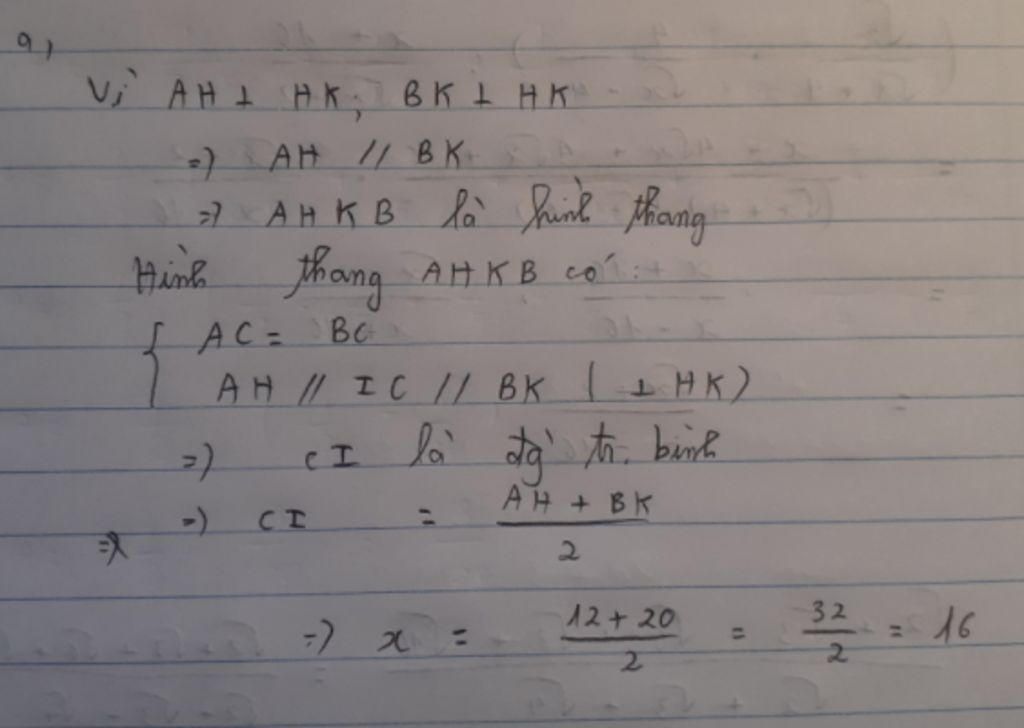 a,
Vì AH ⊥ HK, BK ⊥ HK
=) AH // BK
=) AHKB là hình thang
Hình thang AHKB có:
{ AC = BC
AH // IC // BK ( ⊥ HK)
=) CI là đg` tr. bình
=) CI = (AH + BK)/2
=) x = (12 + 20)/2 = 32/2 = 16